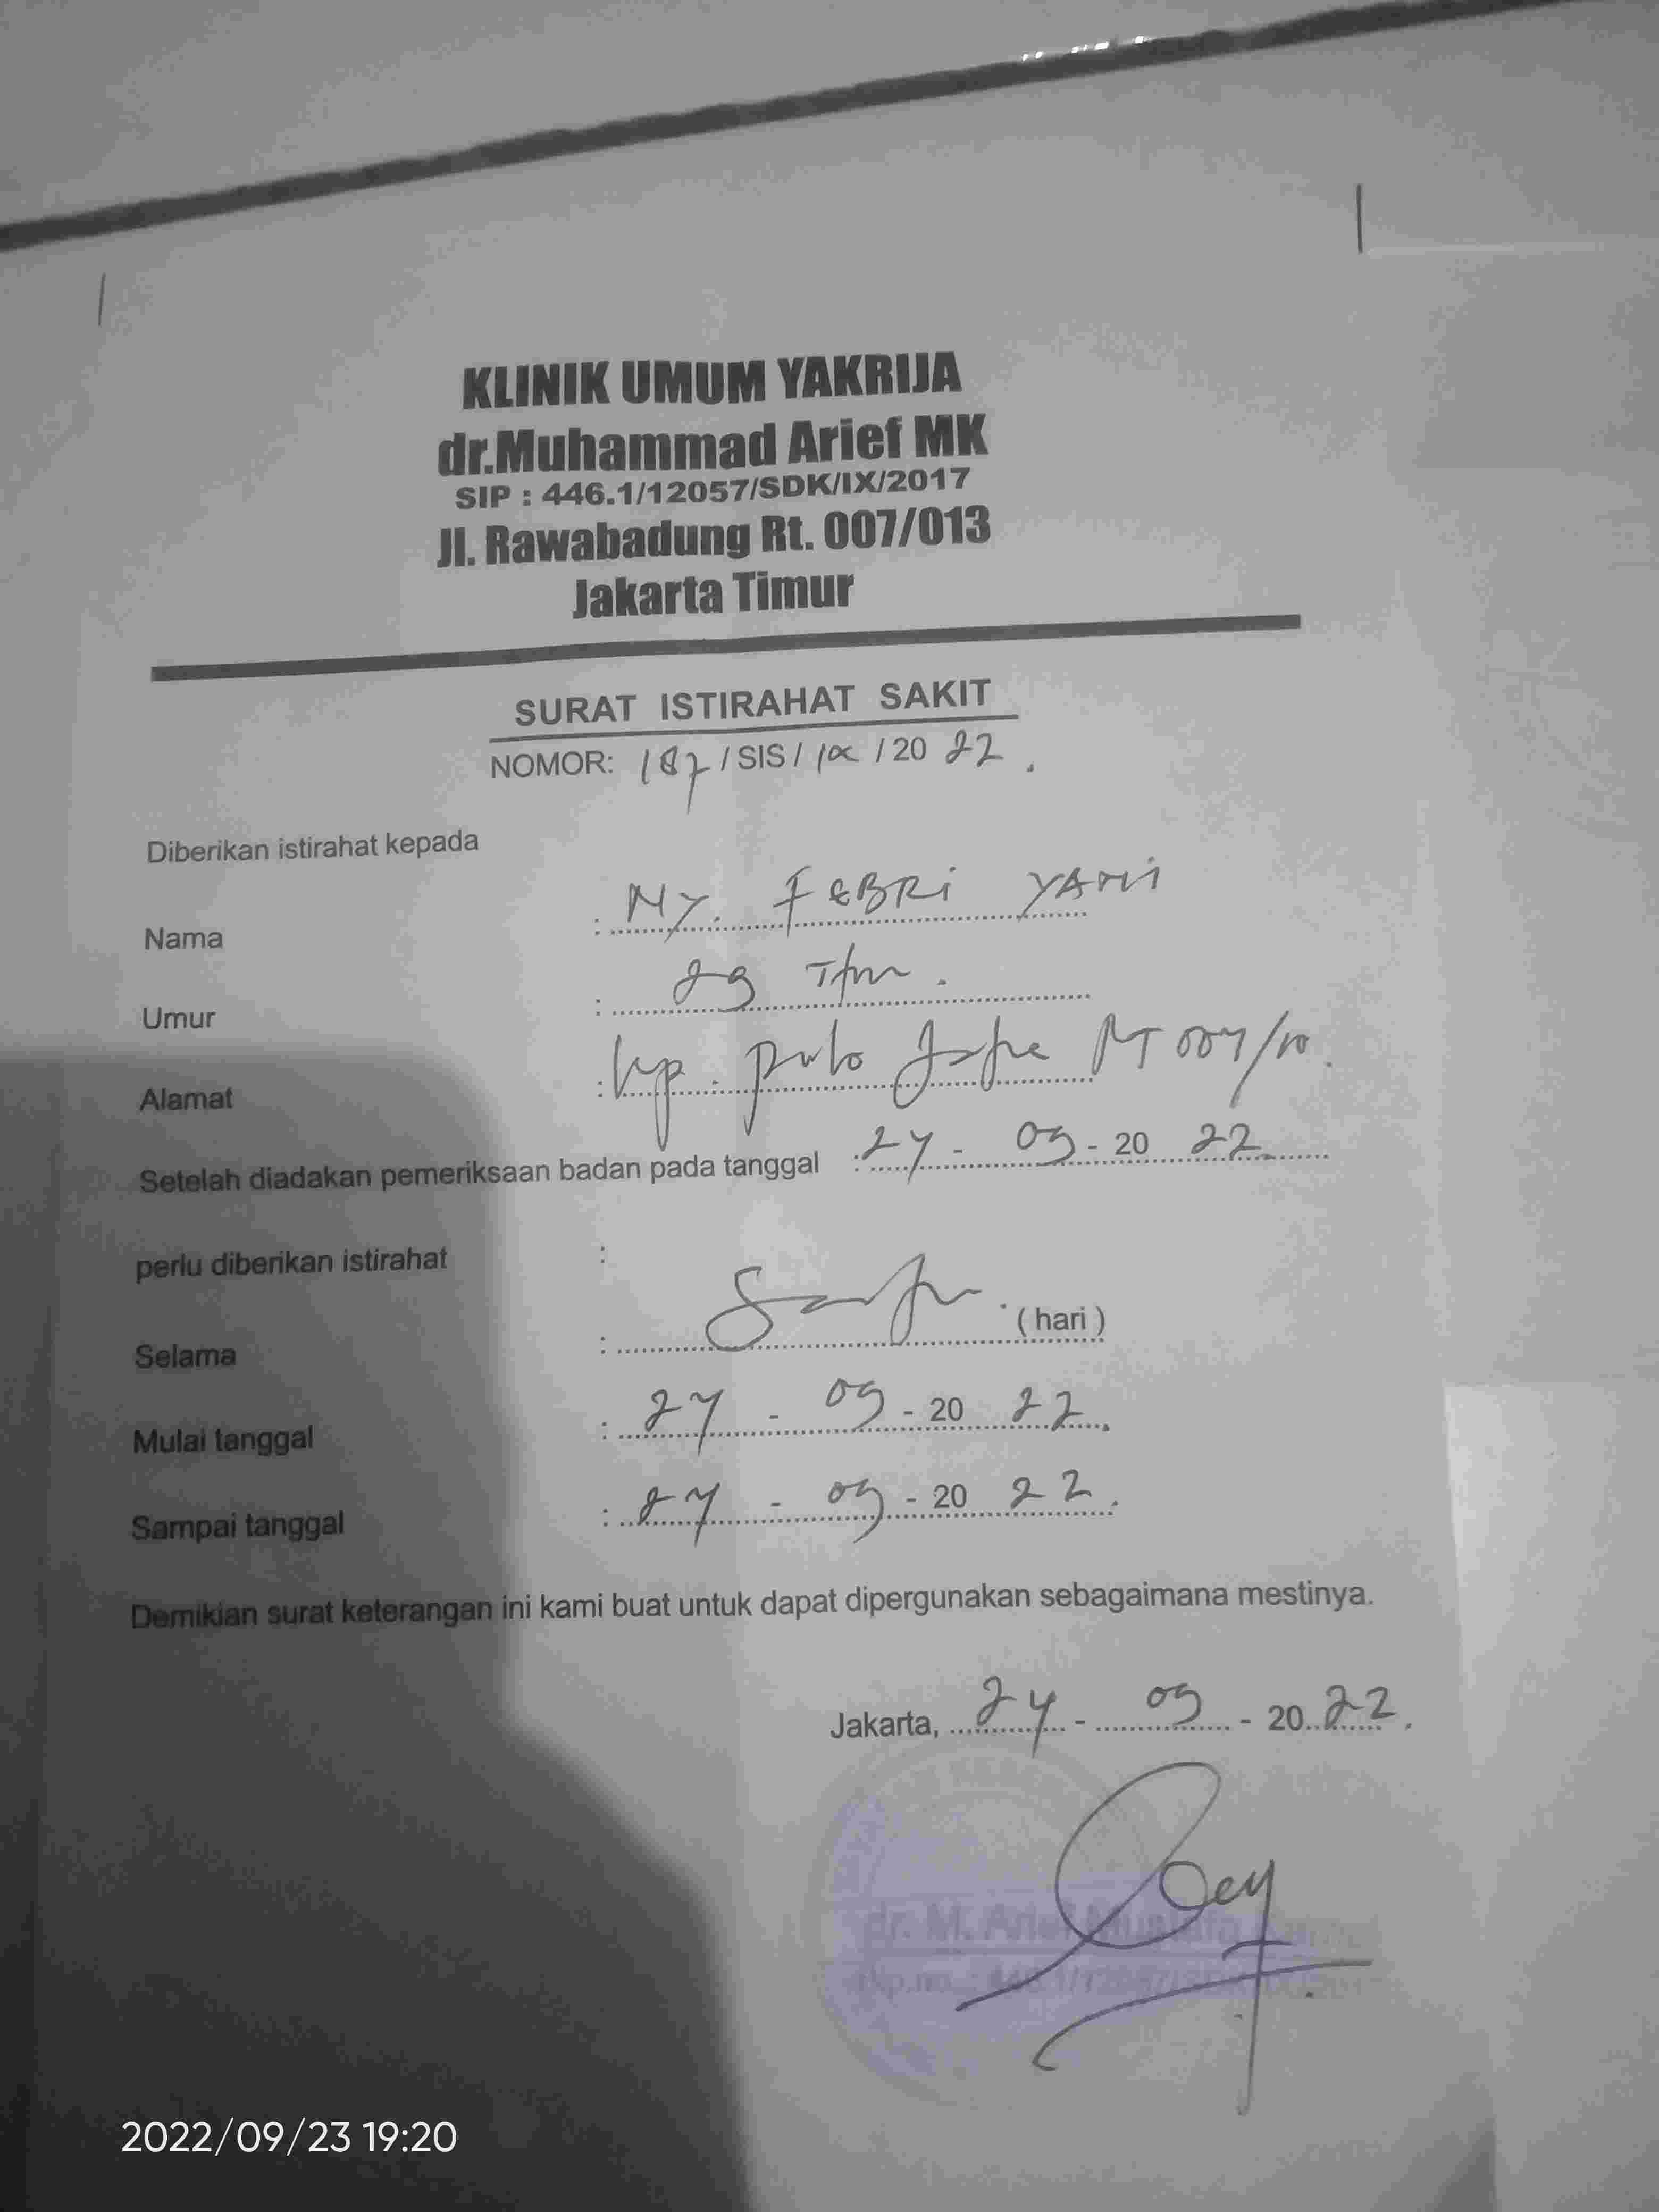 KLINIK UMUM YAKRIJA
dr.Muhammad Arief MK
SIP : 446.1/12057/SDK/IX/2017
Jl. Rawabadung Rt. 007/013
Jakarta Timur
SURAT ISTIRAHAT SAKIT
NOMOR: 187 / SIS / IX / 20 22.
Diberikan istirahat kepada
Nama : NY. FEBRI YANI
Umur : 29 Thn.
Alamat : Kp. pulo Jahe RT 007/10.
Setelah diadakan pemeriksaan badan pada tanggal : 24 - 09 - 20 22
perlu diberikan istirahat :
Selama : Satu (hari)
Mulai tanggal : 24 - 09 - 20 22.
Sampai tanggal : 24 - 09 - 20 22.
Demikian surat keterangan ini kami buat untuk dapat dipergunakan sebagaimana mestinya.
Jakarta, 24 - 09 - 20 22.
dr. M. Arief
2022/09/23 19:20